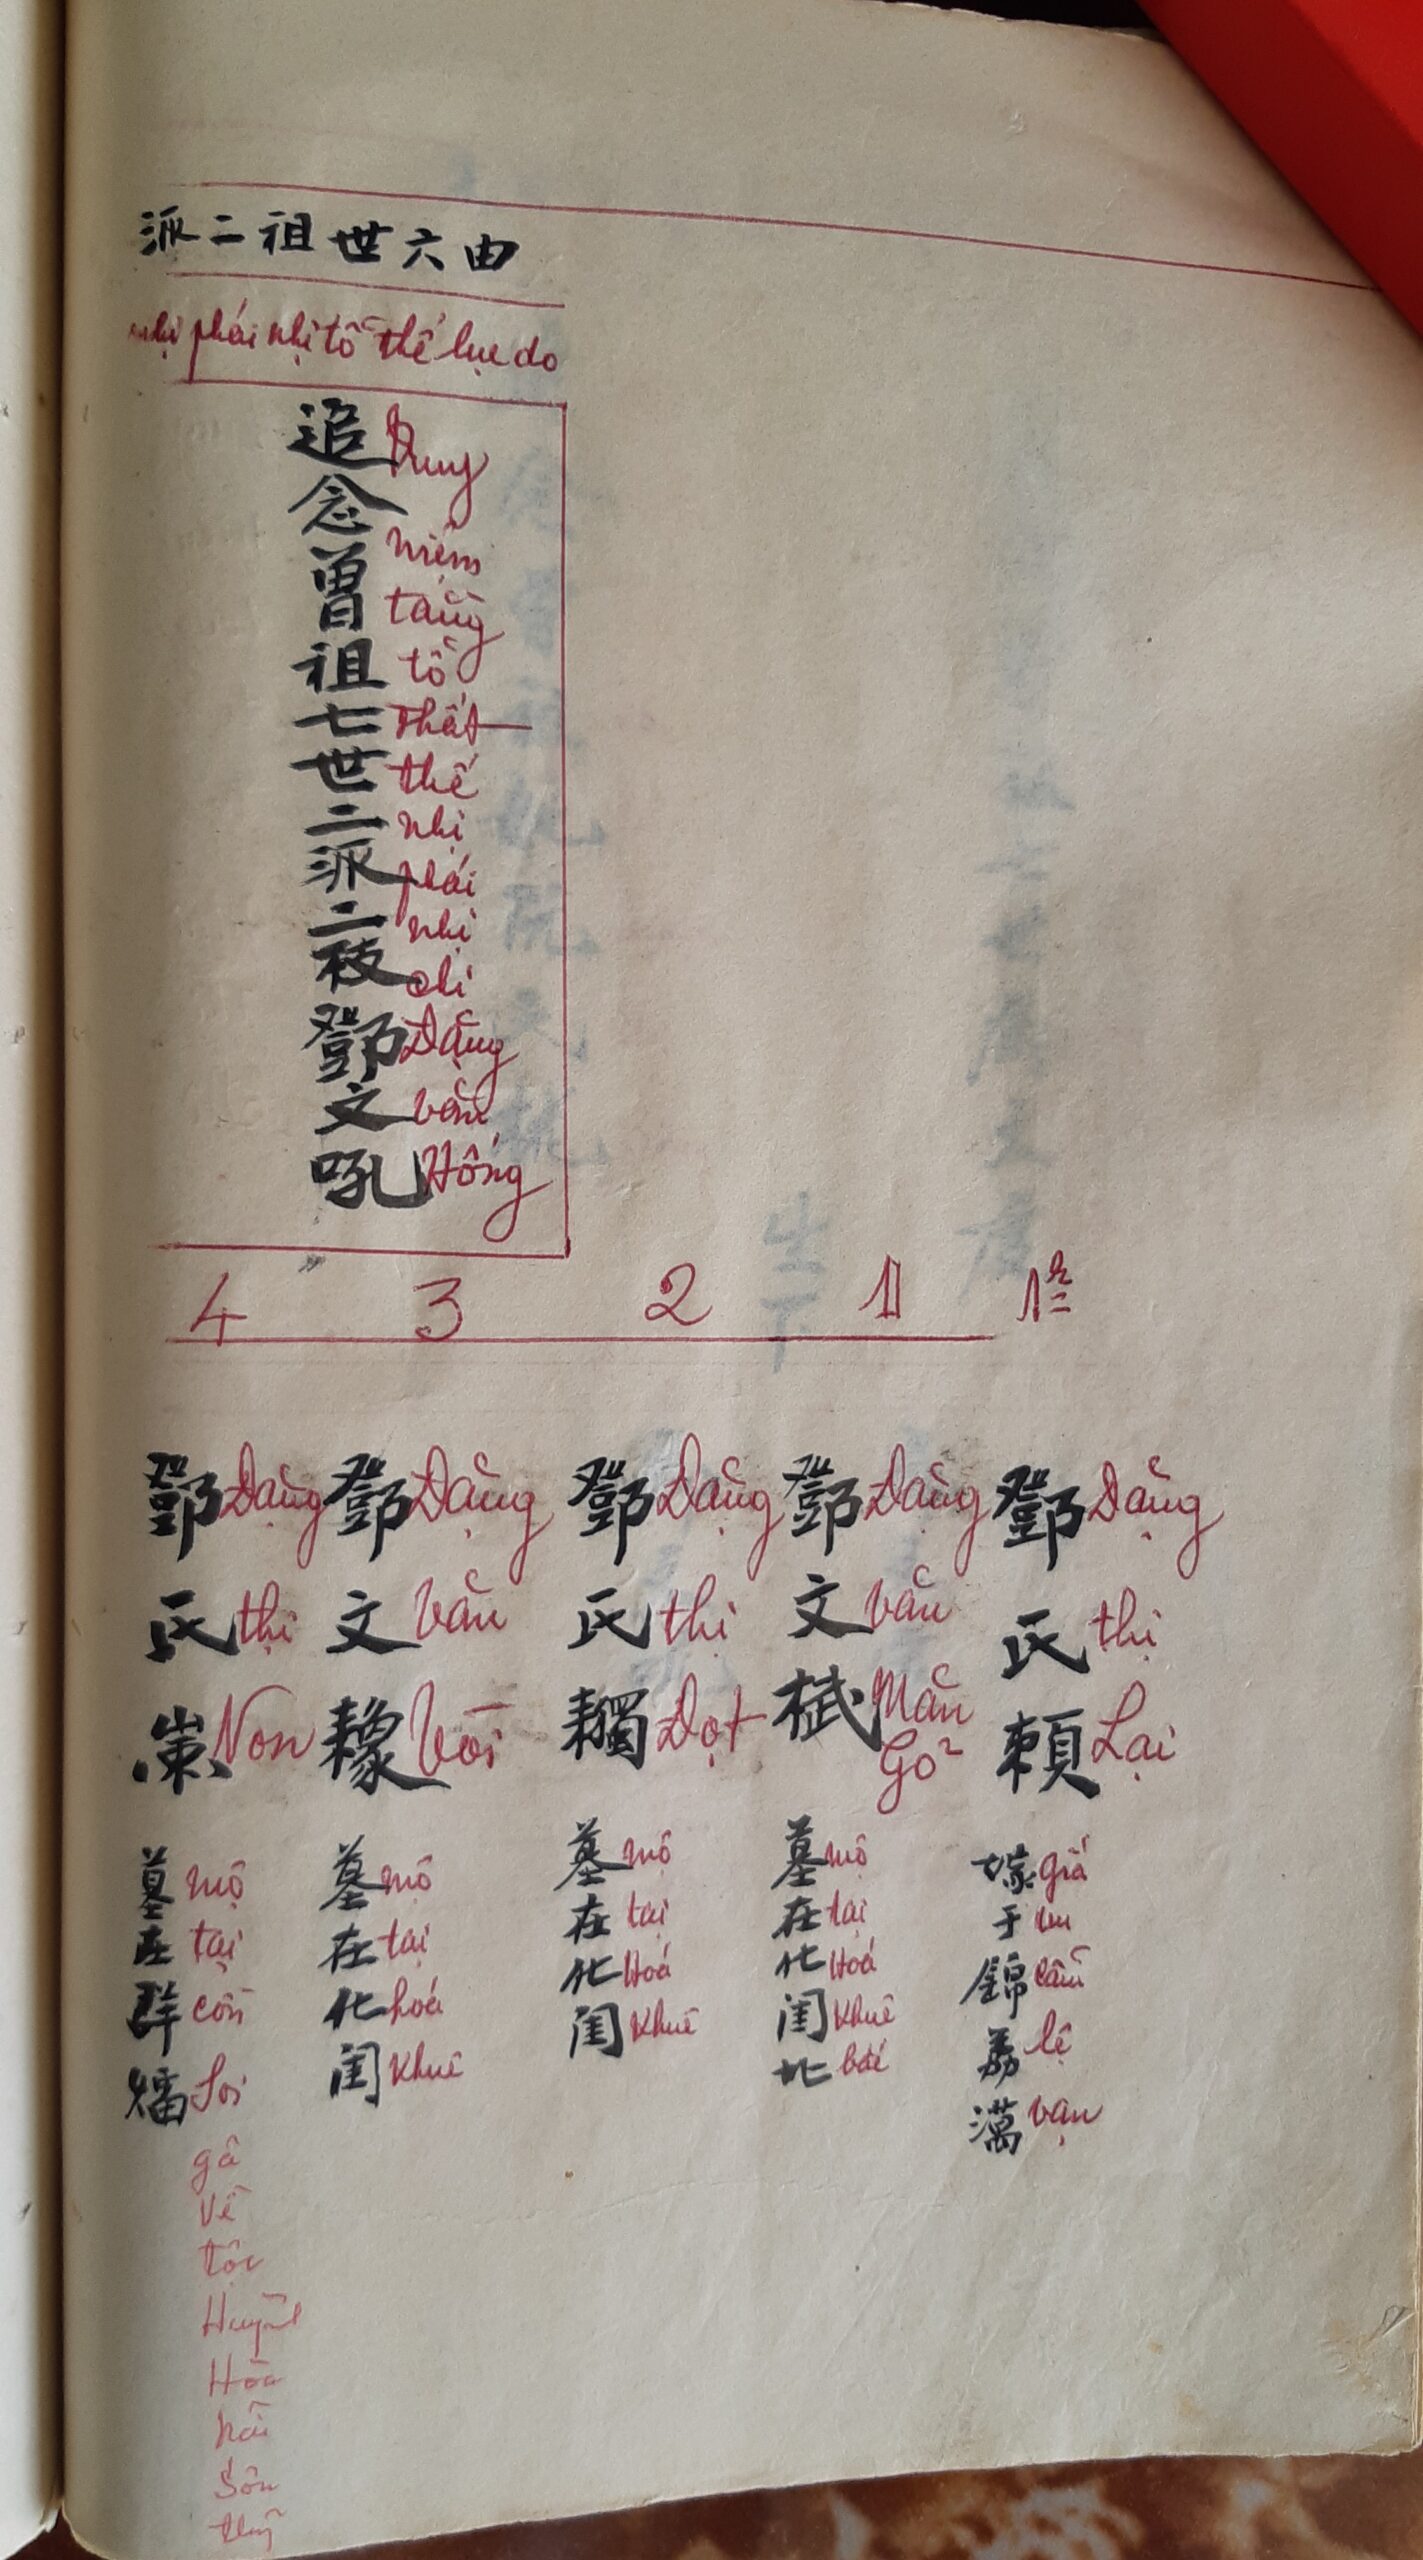 派二祖世六由
nhị phái nhị tổ thế lục do
追念曾祖七世二派二枝鄧文吼
Duy niệm tằng tổ thất thế nhị phái nhị chi Đặng văn Hống
4 3 2 1
鄧氏頼
Đặng thị Lại
嫁于錦荔澫
giá vu cẩm lệ vạn
鄧文㭜
Đặng văn Mằn Gỏ
墓在化閨北
mộ tại Hoá Khuê bắc
鄧氏韣
Đặng thị Đọt
墓在化閨
mộ tại Hoá Khuê
鄧文
Đặng Văn Vòi
墓在化閨
mộ tại hoá Khuê
鄧氏
Đặng thị Non
墓在
mộ tại cồn Soi
gả Về tộc Huỳnh Hòa
Sơn thuỷ